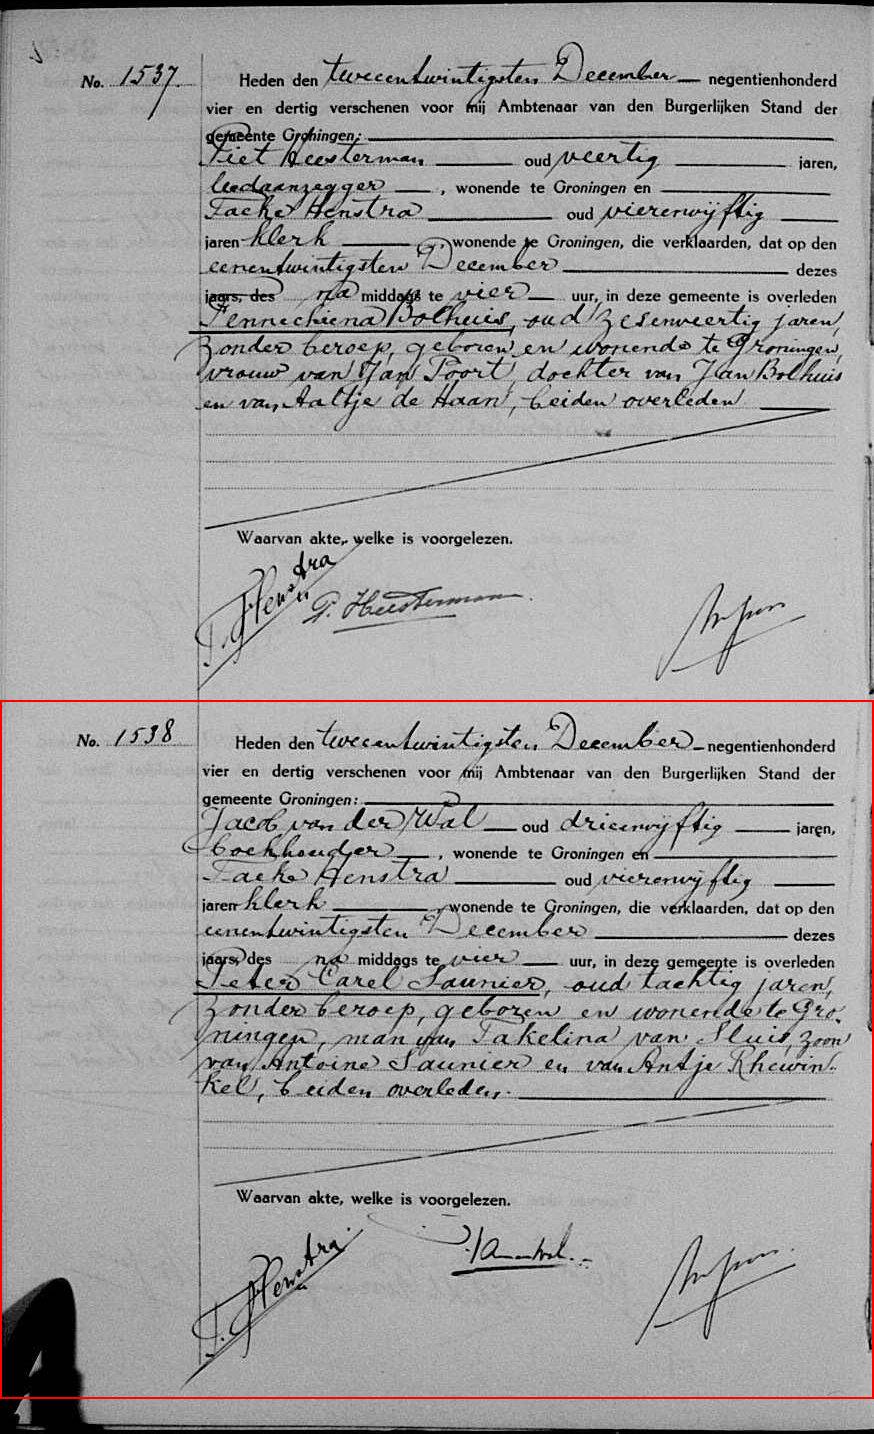 No. 1537.
Heden den tweeentwintigsten December negentienhonderd
vier en dertig verschenen voor mij Ambtenaar van den Burgerlijken Stand der
gemeente Groningen:
Piet Heesterman oud veertig jaren,
leedaanzegger, wonende te Groningen en
Taeke Henstra oud vierenvijftig
jaren klerk, wonende te Groningen, die verklaarden, dat op den
eenentwintigsten December dezes
jaars, des na middags te vier uur, in deze gemeente is overleden
Fennechiena Bolhuis, oud zesenveertig jaren,
zonder beroep, geboren en wonende te Groningen,
vrouw van Jan Poort, dochter van Jan Bolhuis
en van Aaltje de Haan, beiden overleden
Waarvan akte, welke is voorgelezen.
T. Henstra
P. Heesterman.
No. 1538
Heden den tweeentwintigsten December negentienhonderd
vier en dertig verschenen voor mij Ambtenaar van den Burgerlijken Stand der
gemeente Groningen:
Jacob van der Wal oud drieenvijftig jaren,
boekhouder, wonende te Groningen en
Taeke Henstra oud vierenvijftig
jaren klerk, wonende te Groningen, die verklaarden, dat op den
eenentwintigsten December dezes
jaars, des na middags te vier uur, in deze gemeente is overleden
Peter Carel Saunier, oud tachtig jaren,
zonder beroep, geboren en wonende te Gro-
ningen, man van Takelina van Sluis, zoon
van Antoine Saunier en van Antje Rhewin-
kel, beiden overleden.
Waarvan akte, welke is voorgelezen.
T. Henstra